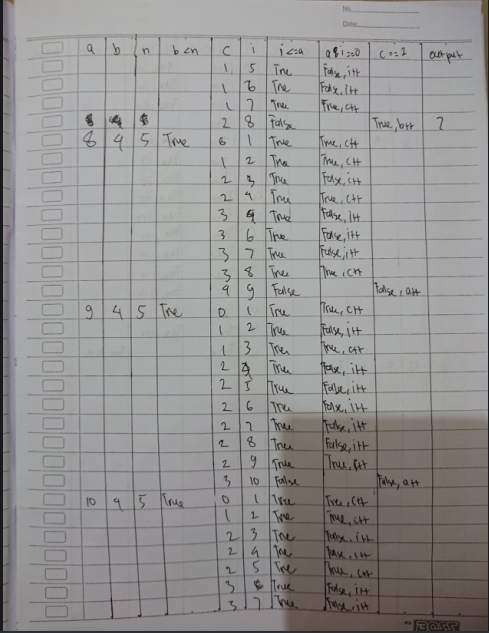 No.
Date
a b n b<n c i i<=a a%i==0 c==2 output
1 5 True False, i++
1 6 True False, i++
1 7 True True, c++
2 8 False True, b++ 7
8 4 5 True 0 1 True True, c++
1 2 True True, c++
2 3 True False, i++
2 4 True True, c++
3 5 True False, i++
3 6 True False, i++
3 7 True False, i++
3 8 True True, c++
4 9 False False, a++
9 4 5 True 0 1 True True, c++
1 2 True False, i++
1 3 True True, c++
2 4 True False, i++
2 5 True False, i++
2 6 True False, i++
2 7 True False, i++
2 8 True False, i++
2 9 True True, c++
3 10 False False, a++
10 4 5 True 0 1 True True, c++
1 2 True True, c++
2 3 True False, i++
2 4 True False, i++
2 5 True True, c++
3 6 True False, i++
3 7 True False, i++
BOSS